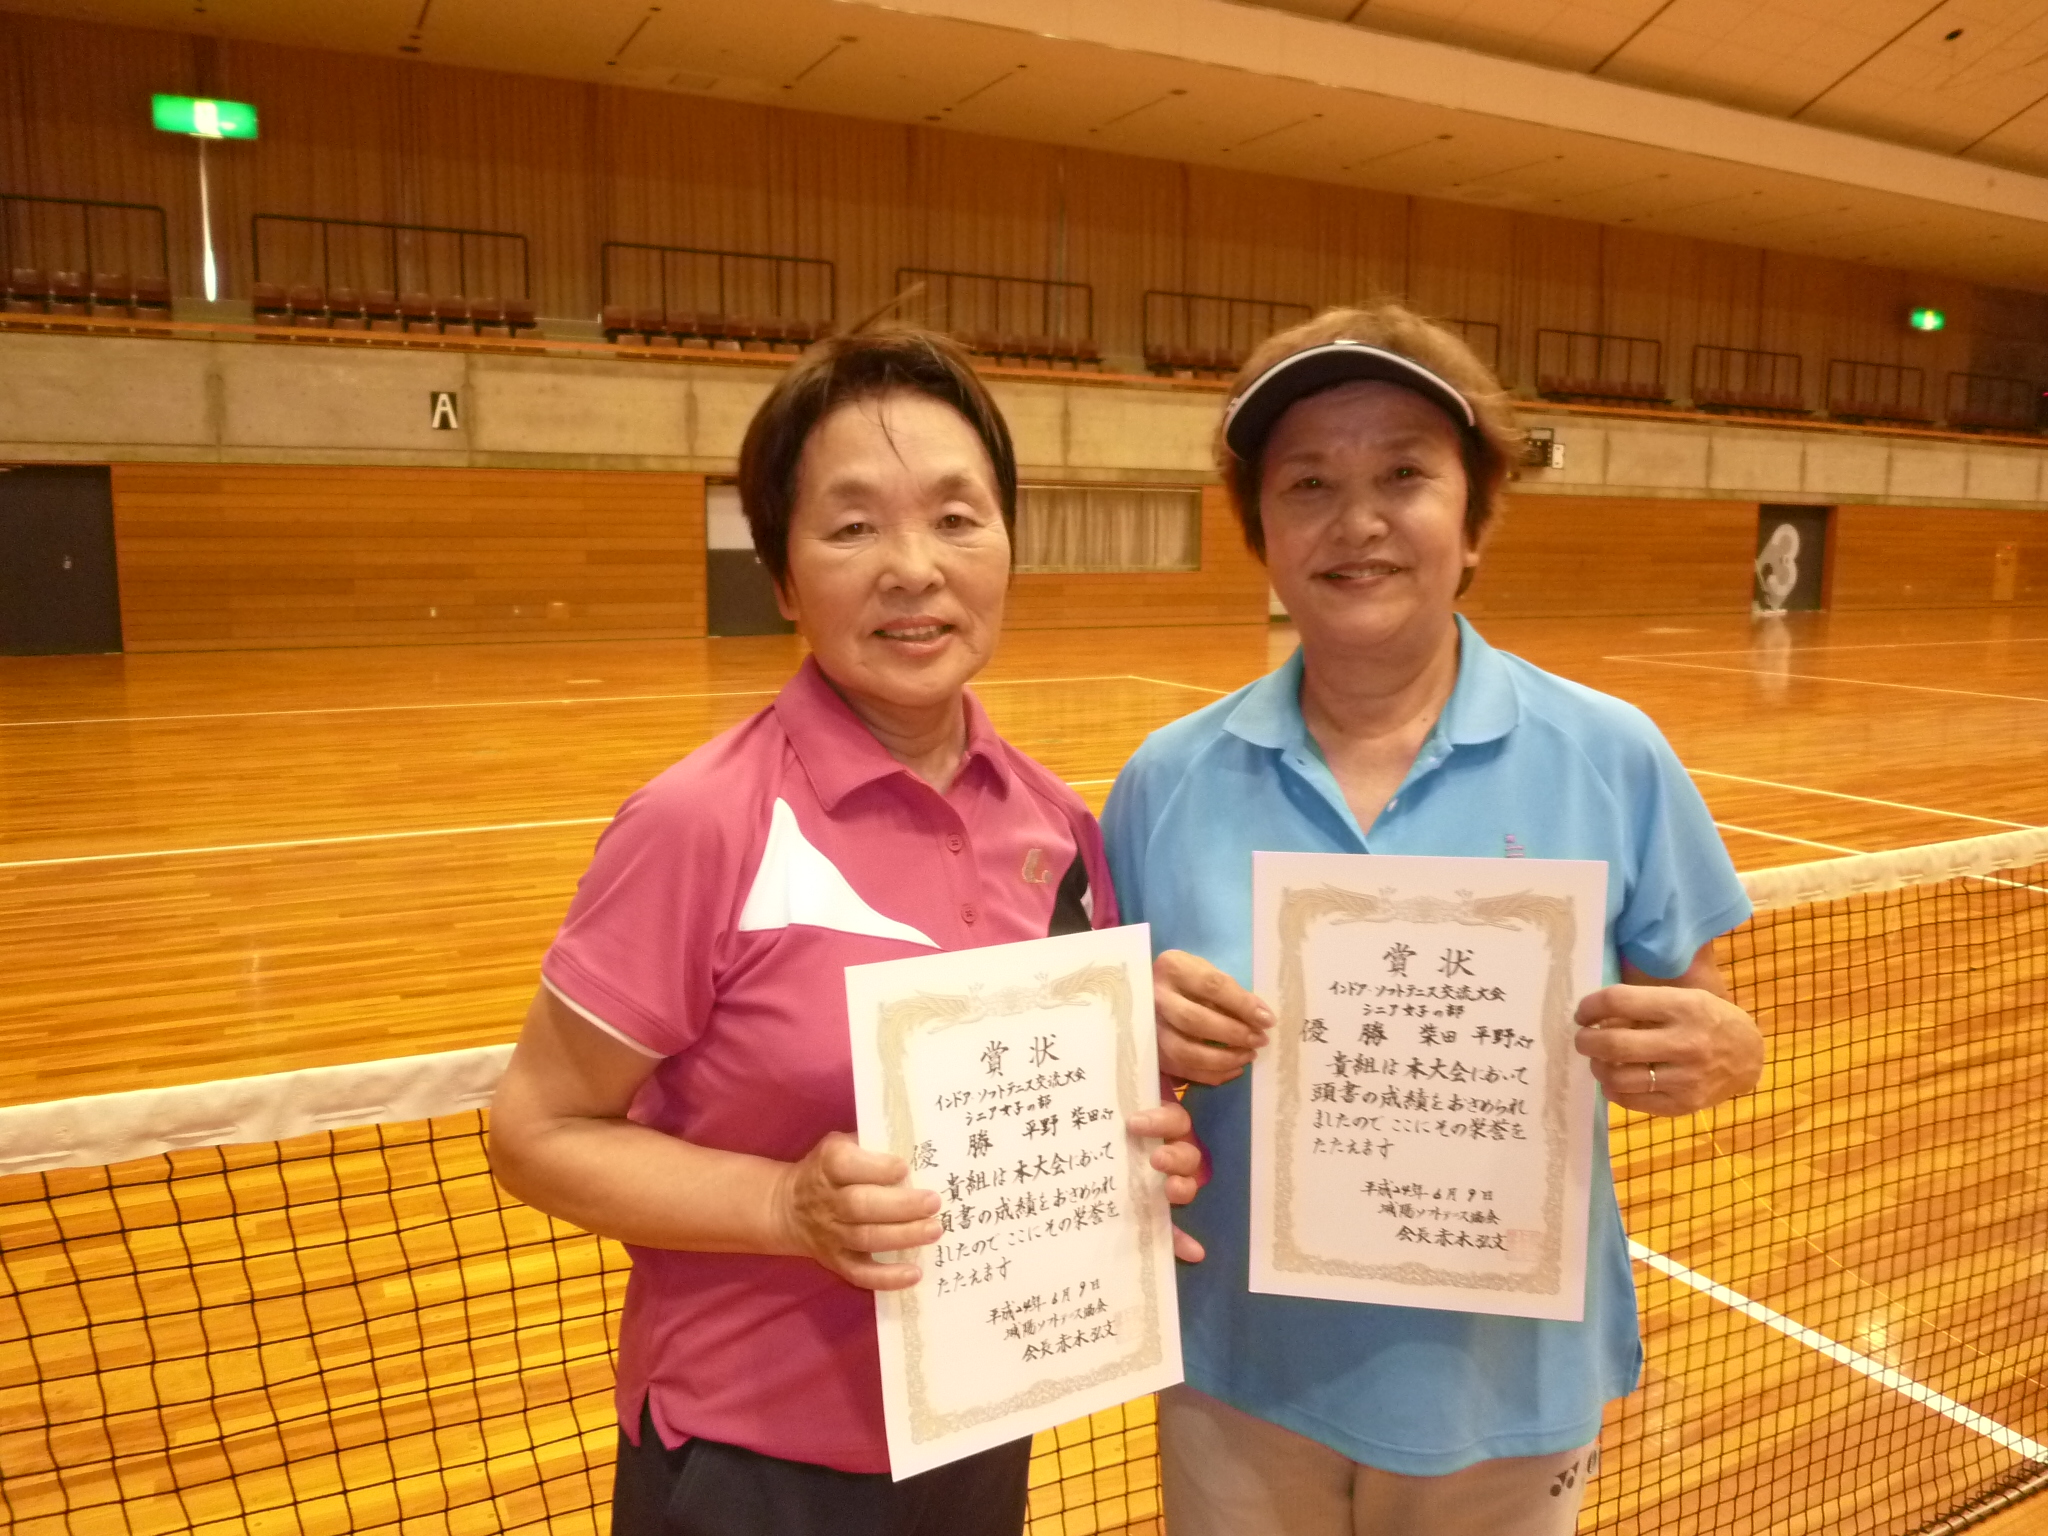 A
B
賞状
インドア・ソフトテニス交流大会
シニア女子の部
優勝 平野 柴田
貴組は本大会において
頭書の成績をおさめられ
ましたので、ここにその栄誉を
たたえます
平成24年6月9日
城陽ソフトテニス協会
会長 赤木弘文
賞状
インドア・ソフトテニス交流大会
シニア女子の部
優勝 柴田 平野
貴組は本大会において
頭書の成績をおさめられ
ましたので ここにその栄誉を
たたえます
平成24年6月9日
城陽ソフトテニス協会
会長 赤木弘文